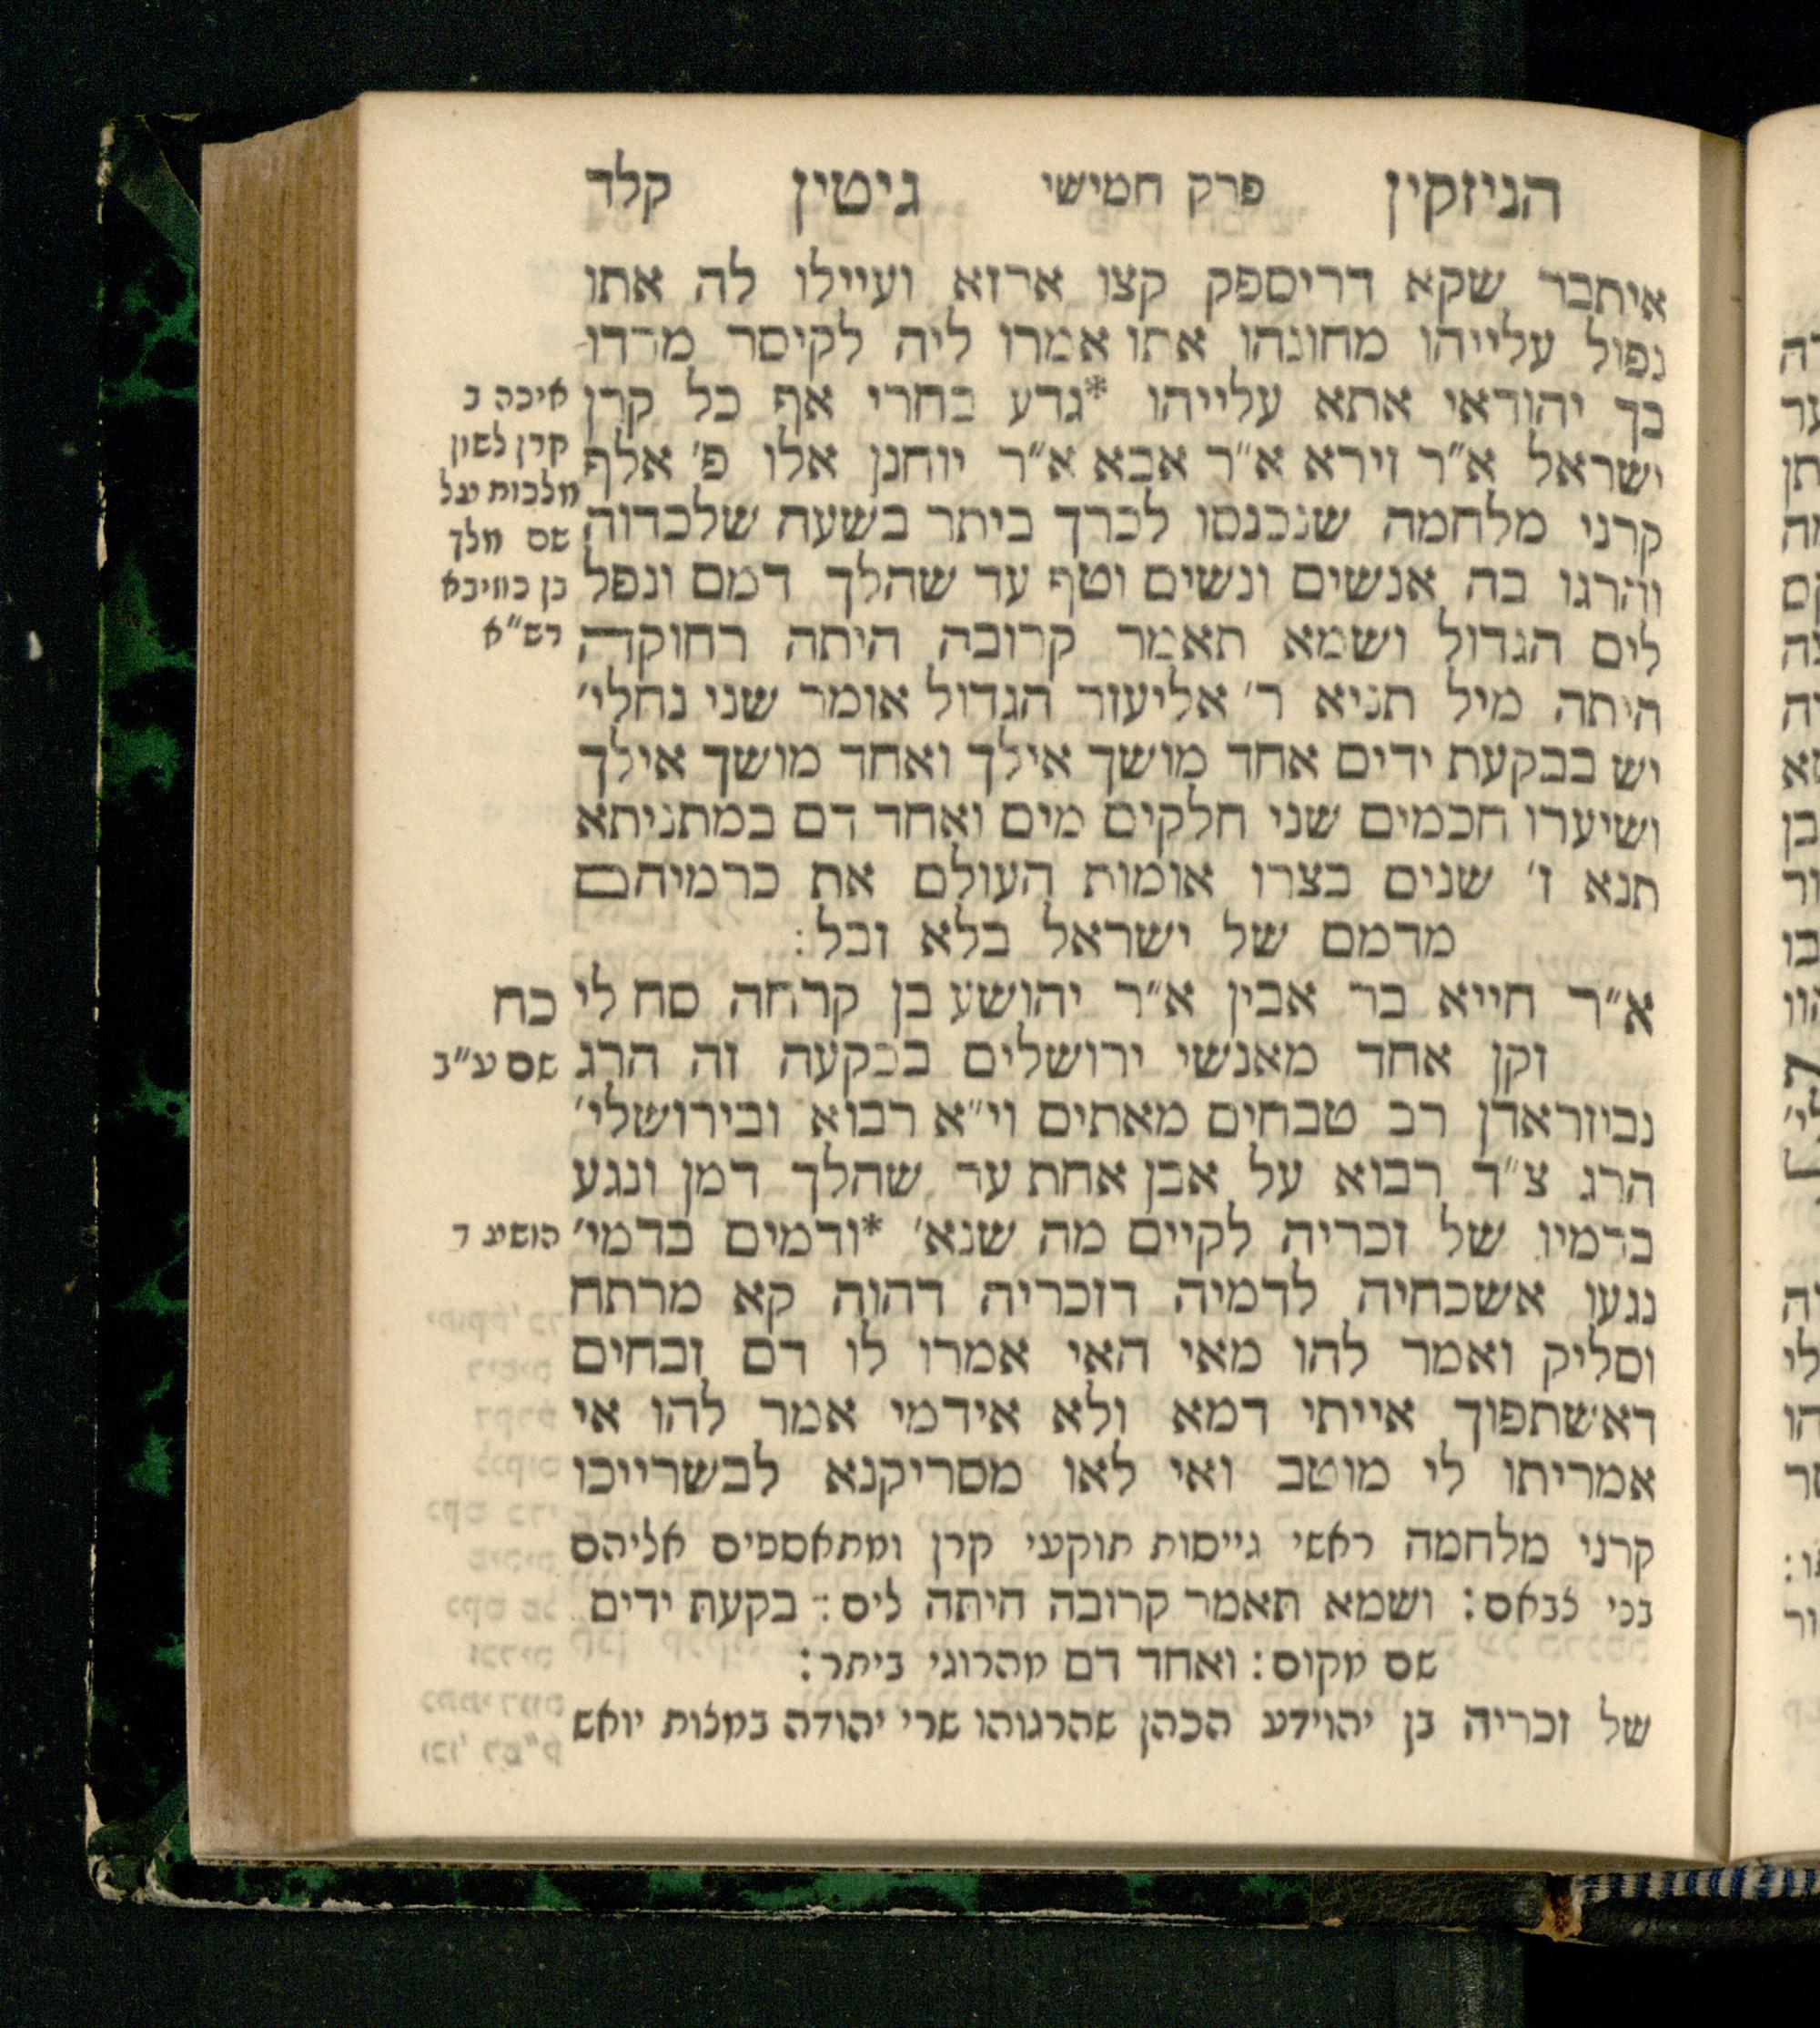 הניזקין פרק חמישי גיטין קלד
איתבר שקא דריספק קצו ארזא ועיילו לה אתו
נפול עלייהו מחונהו אתו אמרו ליה לקיסר מרדו
בך יהודאי אתא עלייהו *גדע בחרי אף כל קרן
ישראל א״ר זירא א״ר אבא א״ר יוחנן אלו פ׳ אלף
קרני מלחמה שנכנסו לכרך ביתר בשעה שלכדוה
והרגו בה אנשים ונשים וטף עד שהלך דמם ונפל
לים הגדול ושמא תאמר קרובה היתה רחוקה
היתה מיל תניא ר׳ אליעזר הגדול אומר שני נחלי׳
יש בבקעת ידים אחד מושך אילך ואחד מושך אילך
ושיערו חכמים שני חלקים מים ואחד דם במתניתא
תנא ז׳ שנים בצרו אומות העולם את כרמיהם
מדמם של ישראל בלא זבל:
א״ר חייא בר אבין א״ר יהושע בן קרחה סח לי
זקן אחד מאנשי ירושלים בבקעה זה הרג
נבוזראדן רב טבחים מאתים וי״א רבוא ובירושלי׳
הרג צ״ד רבוא על אבן אחת עד שהלך דמן ונגע
בדמיו של זכריה לקיים מה שנא׳ *ודמים בדמי׳
נגעו אשכחיה לדמיה דזכריה דהוה קא מרתח
וסליק ואמר להו מאי האי אמרו לו דם זבחים
דאשתפוך אייתי דמא ולא אידמי אמר להו אי
אמריתו לי מוטב ואי לאו מסריקנא לבשרייכו
קרני מלחמה ראשי גייסות תוקעי קרן ומתאספים אליהם
בני לבאם: ושמא תאמר קרובה היתה לים: בקעת ידים
שם מקום: ואחד דם מהרוגי ביתר:
של זכריה בן יהוידע הכהן שהרגוהו שרי יהודה במצות יואש
איכה ב
קרן לשון
מלכות ועל
שם מלך
בן כוזיבא
רש״א
כח
שם ע״ב
הושע ד